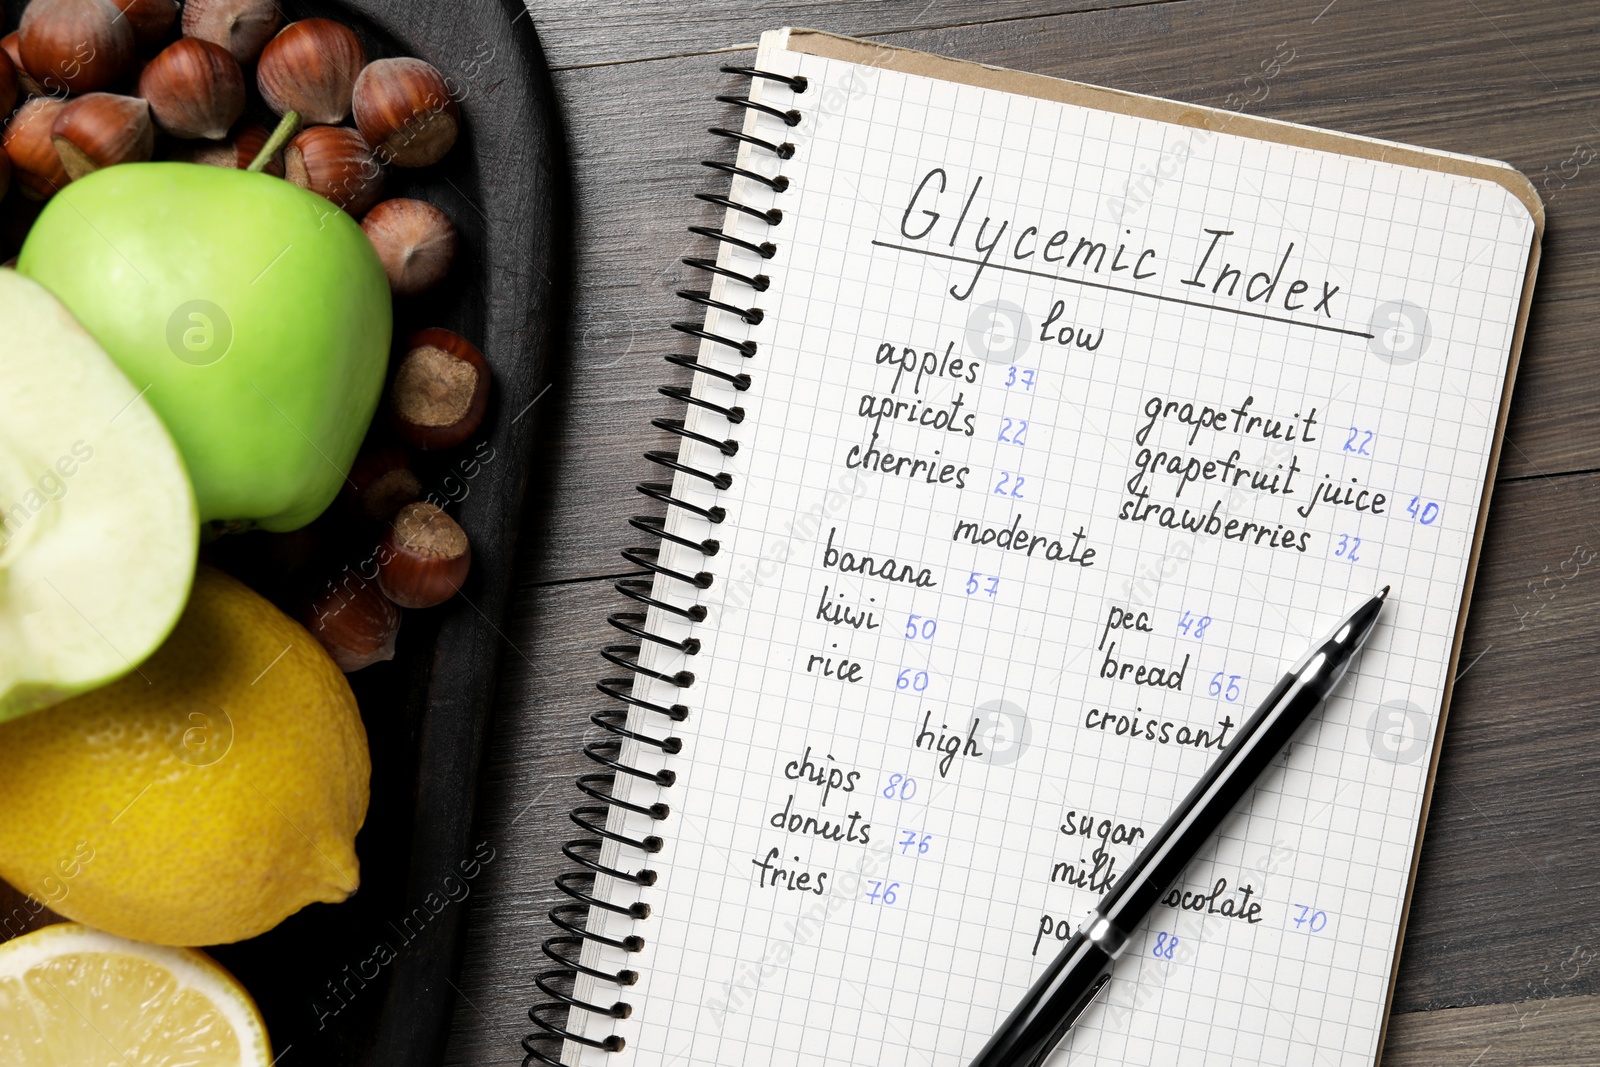 Glycemic Index
low
apples 37
apricots 22
cherries 22
grapefruit 22
grapefruit juice 40
strawberries 32
moderate
banana 57
kiwi 50
rice 60
pea 48
bread 65
croissant
high
chips 80
donuts 76
fries 76
sugar
milk 70
88
Africa Images
a